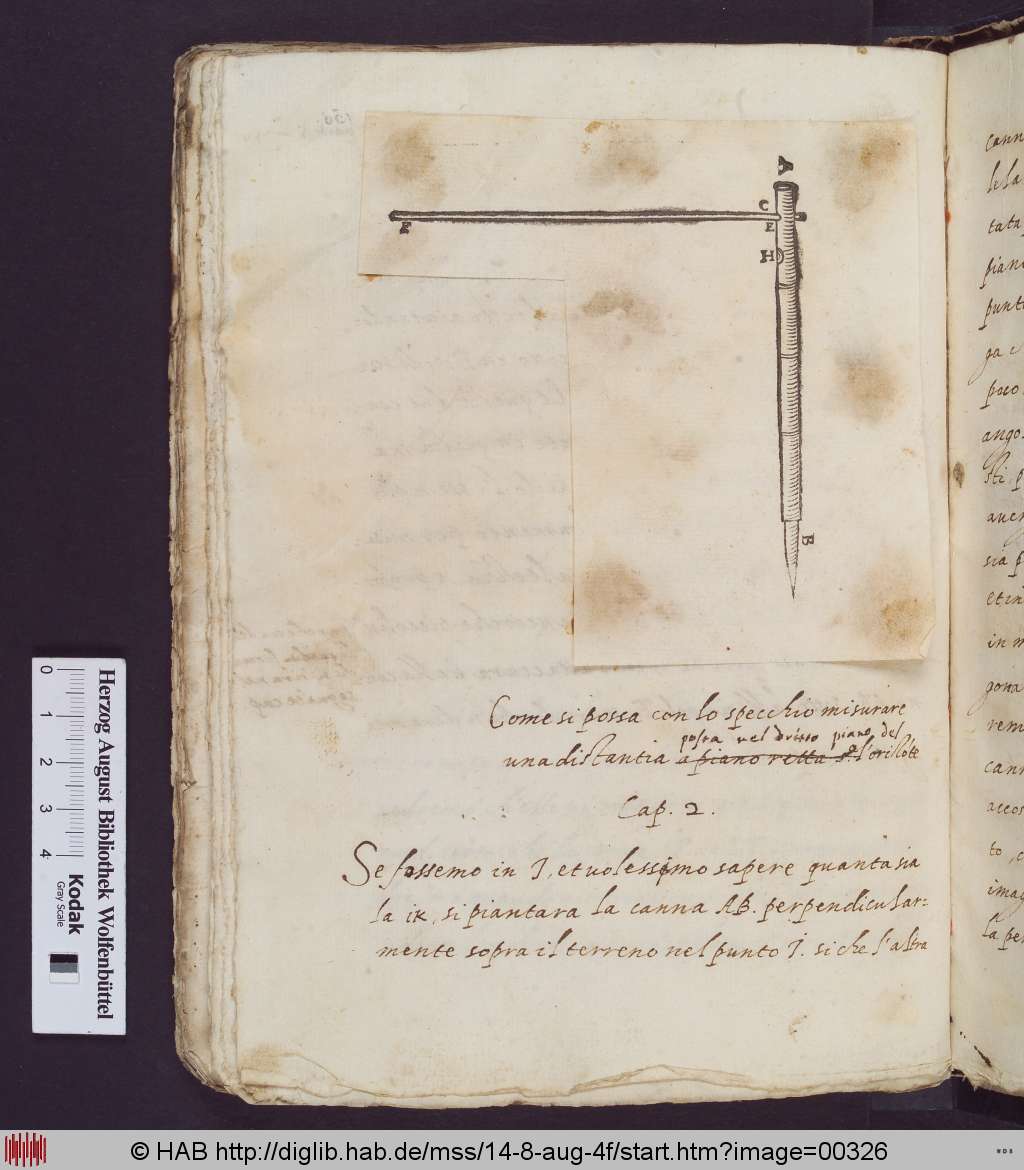 A
C
F
E
H
B
Come si possa con lo specchio misurare
posta nel dritto piano del
una distantia a piano retta l'orizonte
Cap. 2.
Se fossemo in I, et volessimo sapere quanta sia
la iK, si piantara la canna AB. perpendicular=
mente sopra il terreno nel punto I. si che l'altra
cann
le la
tata
piano
punt
ga
poco
ango
sti, p
sia p
et in
in m
gona
rem
cann
accos
to, c
imag
la pe
Herzog August Bibliothek Wolfenbüttel
Kodak
Gray Scale
0 1 2 3 4
© HAB http://diglib.hab.de/mss/14-8-aug-4f/start.htm?image=00326